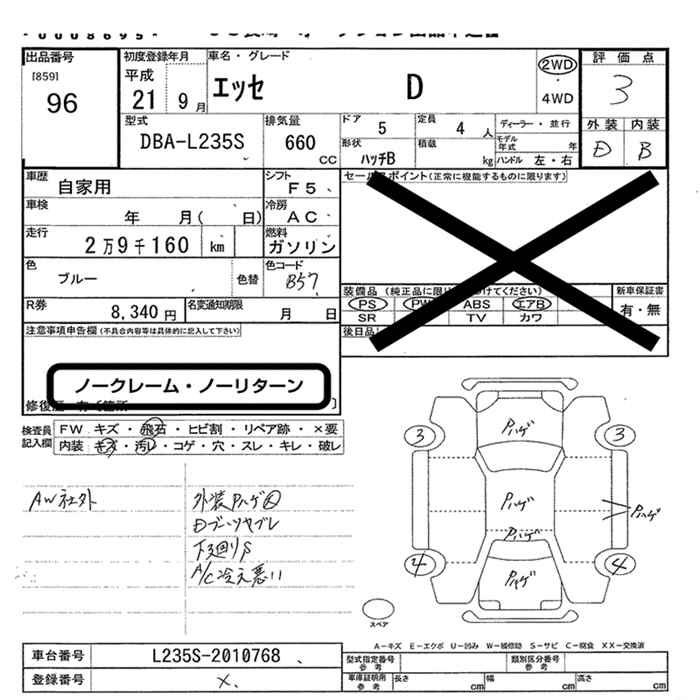 出品番号
[859]
96
初度登録年月
平成
21 9月
車名・グレード
エッセ D
2WD
4WD
評価点
3
外装 内装
D B
型式
DBA-L235S
排気量
660
CC
ドア 5
定員 4 人
ディーラー・並行
モデル年式 年
形状
ハッチB
積載 kg
ハンドル 左・右
車歴
自家用
シフト
F5
車検
年 月( 日)
冷房
AC
走行
2万9千160 km
燃料
ガソリン
色
ブルー
色替
色コード
B57
R券
8,340円
名変通知期限
月 日
セールスポイント(正常に機能するものに限ります)
装備品(純正品に限り
けてください)
PS PW ABS エアB
SR TV カワ
新車保証書
有・無
後日品
注意事項申告欄(不具合内容等は具体的に記入して下さい)
ノークレーム・ノーリターン
修復歴
検査員記入欄
FW キズ・飛石・ヒビ割・リペア跡・×要
内装 キズ・汚レ・コゲ・穴・スレ・キレ・破レ
AW社外
外装Pハゲ大
Dブーツヤブレ
下廻りS
A/C冷え悪い
Pハゲ
3 3
Pハゲ
Pハゲ
Pハゲ
4 4
Pハゲ
スペア
A-キズ E-エクボ U-凹み W-補修跡 S-サビ C-腐食 XX-交換済
車台番号
L235S-2010768
登録番号
×
型式指定番号
参考
類別区分番号
参考
車庫証明用
参考
長さ cm
幅 cm
高さ cm